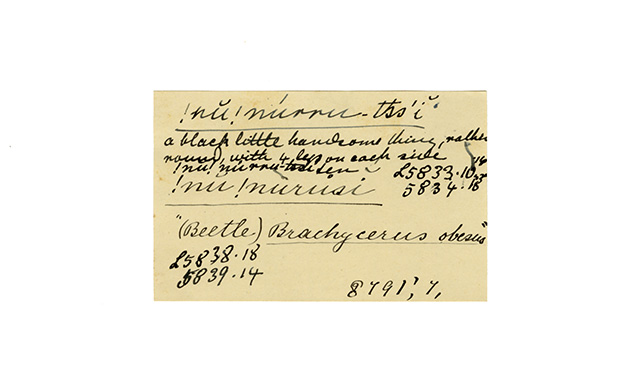 !nŭ!núrru-tss'ĭ
a black little handsome thing, rather
round, with 4 legs on each side
!nu!núrru-tsĭtĕn
L5833.10
5834.18
!nu!nurusi
"(Beetle) Brachycerus obesus"
L5838.18
5839.14
8791', 7,